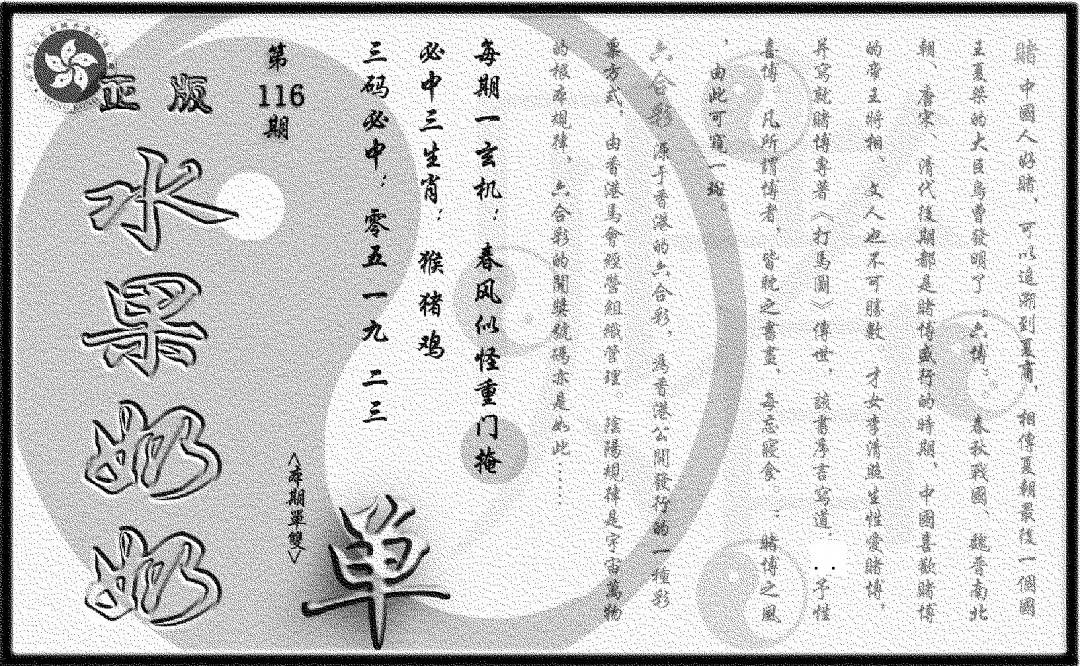 賭中國人好賭，可以追溯到夏商，相傳夏朝最後一個國
王夏桀的大臣烏曹發明了；六博；　春秋戰國、魏晉南北
朝、唐宋、清代後期都是賭博盛行的時期，中國喜歡賭博
的帝王將相　文人也不可勝數　才女李清照生性愛賭博，
并寫就賭博專著〈打馬圖〉傳世，該書序言寫道：予性
喜博，凡所謂博者，皆耽之晝晝，每忘寢食；賭博之風
，由此可窺一斑。
六合彩源于香港的六合彩，為香港公開發行的一種彩
票方式，由香港馬會經營組織管理。陰陽規律是宇宙萬物
的根本規律，六合彩的開獎號碼亦是如此……
每期一玄机：春风似怪重门掩
必中三生肖：猴猪鸡
三码必中：零五一九二三
第116期
<本期單雙>
单
正版
水果奶奶